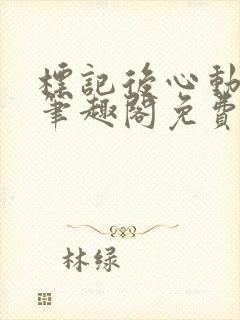 標記後心動
筆趣閣免費
林绿